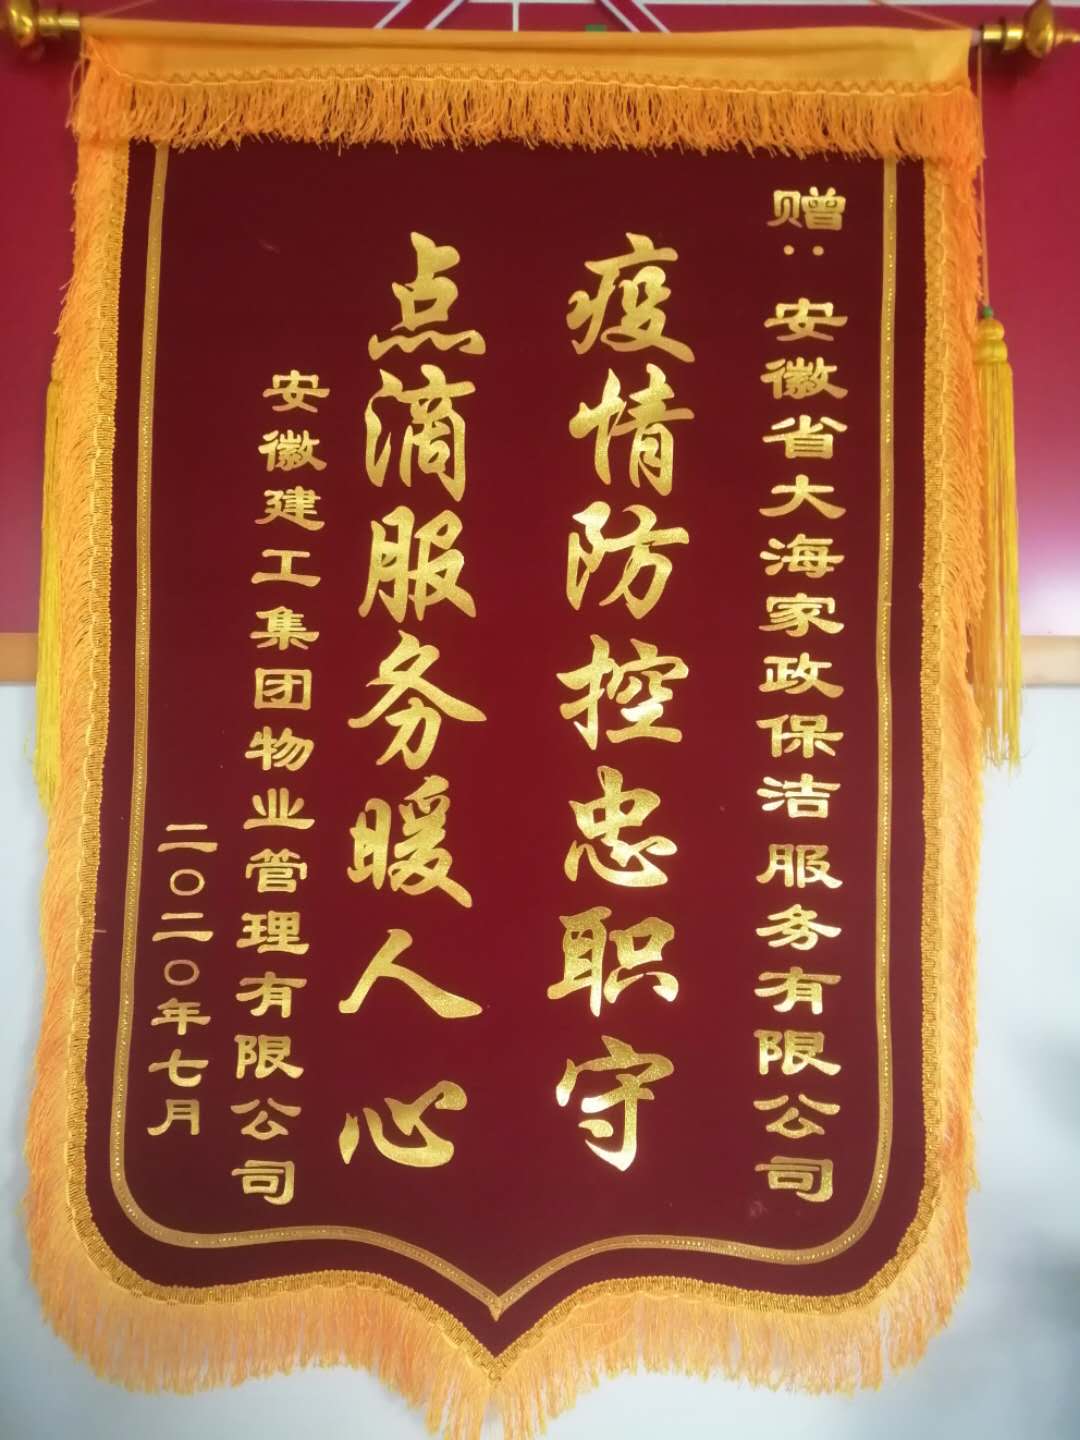 赠：安徽省大海家政保洁服务有限公司
疫情防控忠职守
点滴服务暖人心
安徽建工集团物业管理有限公司
二〇二〇年七月